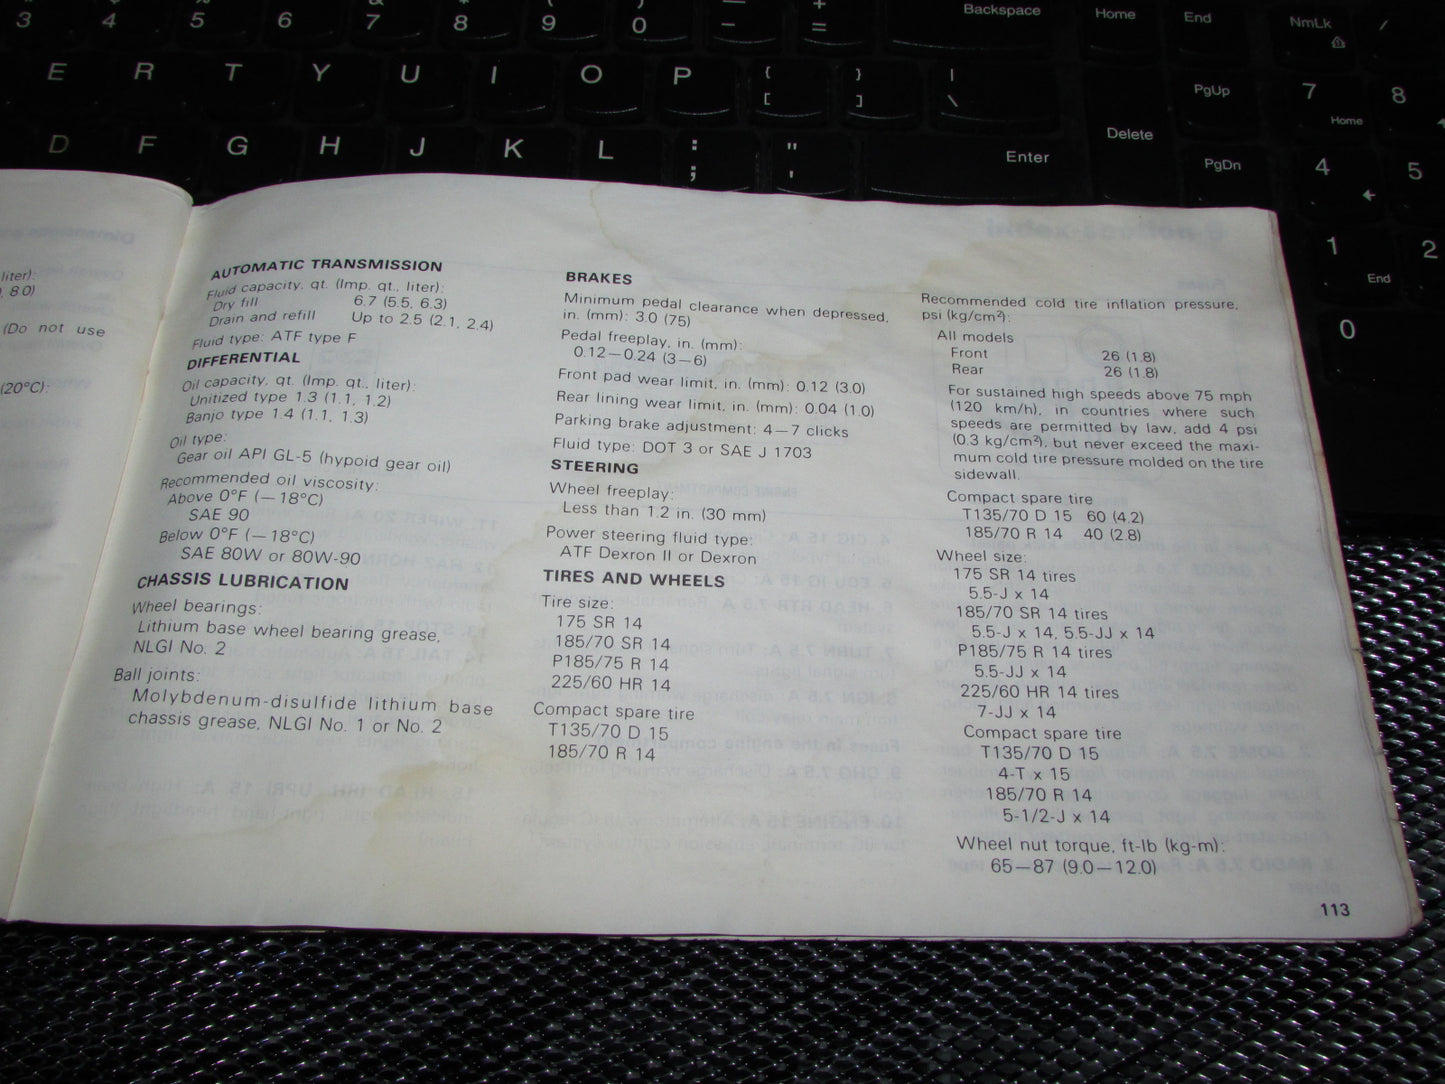 3 4 5 6 7 8 9 0 – + = Backspace Home End NmLk /
E R T Y U I O P { [ } ] | \ PgUp 7 Home 8
D F G H J K L : ; " ' Enter Delete PgDn 4 5
1 End 2
0
liter):
, 8.0)
(Do not use
(20°C):
AUTOMATIC TRANSMISSION
Fluid capacity, qt. (Imp. qt., liter):
Dry fill 6.7 (5.5, 6.3)
Drain and refill Up to 2.5 (2.1, 2.4)
Fluid type: ATF type F
DIFFERENTIAL
Oil capacity, qt. (Imp. qt., liter):
Unitized type 1.3 (1.1, 1.2)
Banjo type 1.4 (1.1, 1.3)
Oil type:
Gear oil API GL-5 (hypoid gear oil)
Recommended oil viscosity:
Above 0°F (—18°C)
SAE 90
Below 0°F (—18°C)
SAE 80W or 80W-90
CHASSIS LUBRICATION
Wheel bearings:
Lithium base wheel bearing grease,
NLGI No. 2
Ball joints:
Molybdenum-disulfide lithium base
chassis grease, NLGI No. 1 or No. 2
BRAKES
Minimum pedal clearance when depressed,
in. (mm): 3.0 (75)
Pedal freeplay, in. (mm):
0.12—0.24 (3—6)
Front pad wear limit, in. (mm): 0.12 (3.0)
Rear lining wear limit, in. (mm): 0.04 (1.0)
Parking brake adjustment: 4—7 clicks
Fluid type: DOT 3 or SAE J 1703
STEERING
Wheel freeplay:
Less than 1.2 in. (30 mm)
Power steering fluid type:
ATF Dexron II or Dexron
TIRES AND WHEELS
Tire size:
175 SR 14
185/70 SR 14
P185/75 R 14
225/60 HR 14
Compact spare tire
T135/70 D 15
185/70 R 14
Recommended cold tire inflation pressure,
psi (kg/cm²):
All models
Front 26 (1.8)
Rear 26 (1.8)
For sustained high speeds above 75 mph
(120 km/h), in countries where such
speeds are permitted by law, add 4 psi
(0.3 kg/cm²), but never exceed the maxi-
mum cold tire pressure molded on the tire
sidewall.
Compact spare tire
T135/70 D 15 60 (4.2)
185/70 R 14 40 (2.8)
Wheel size:
175 SR 14 tires
5.5-J x 14
185/70 SR 14 tires
5.5-J x 14, 5.5-JJ x 14
P185/75 R 14 tires
5.5-JJ x 14
225/60 HR 14 tires
7-JJ x 14
Compact spare tire
T135/70 D 15
4-T x 15
185/70 R 14
5-1/2-J x 14
Wheel nut torque, ft-lb (kg-m):
65—87 (9.0—12.0)
113